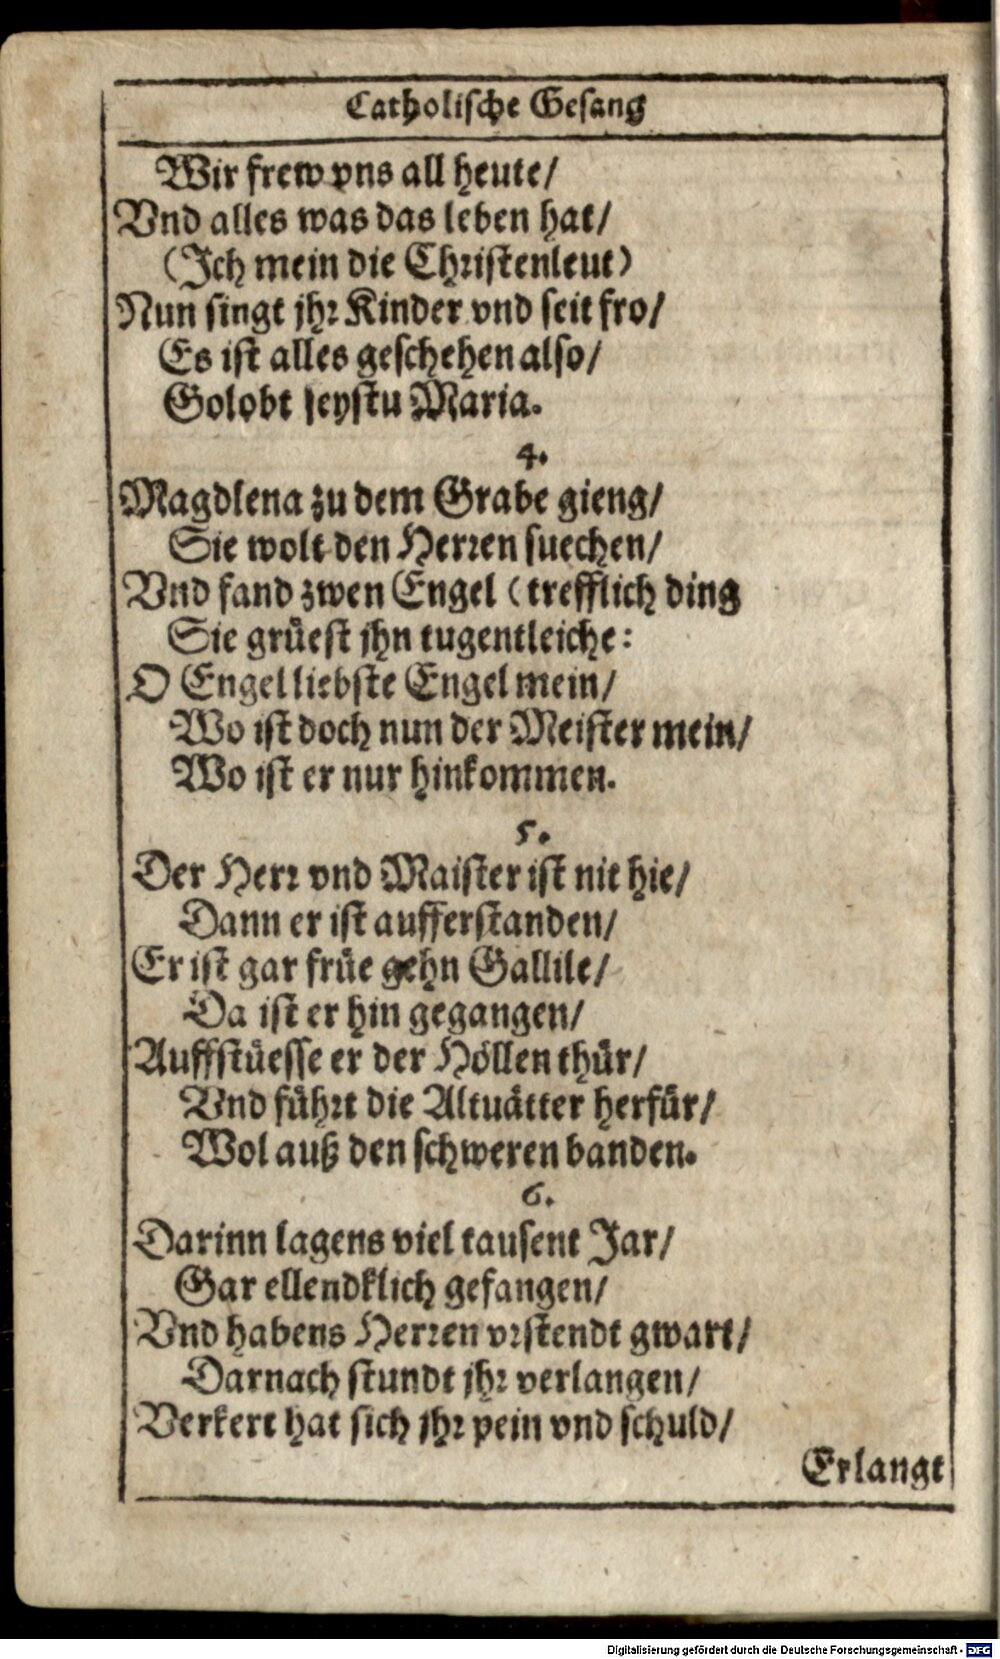 Catholische Gesang
Wir frew vns all heute/
Vnd alles was das leben hat/
(Ich mein die Christenleut)
Nun singt jhr Kinder vnd seit fro/
Es ist alles geschehen also/
Golobt seystu Maria.
4.
Magdlena zu dem Grabe gieng/
Sie wolt den Herren suechen/
Vnd fand zwen Engel (trefflich ding
Sie grüest jhn tugentleiche:
O Engel liebste Engel mein/
Wo ist doch nun der Meister mein/
Wo ist er nur hinkommen.
5.
Der Herr vnd Maister ist nit hie/
Dann er ist aufferstanden/
Er ist gar früe gehn Gallile/
Da ist er hin gegangen/
Auffstüesse er der Höllen thür/
Vnd führt die Altuätter herfür/
Wol auß den schweren banden.
6.
Darinn lagens viel tausent Jar/
Gar ellendklich gefangen/
Vnd habens Herren vrstendt gwart/
Darnach stundt jhr verlangen/
Verkert hat sich jhr pein vnd schuld/
Erlangt
Digitalisierung gefördert durch die Deutsche Forschungsgemeinschaft - DFG